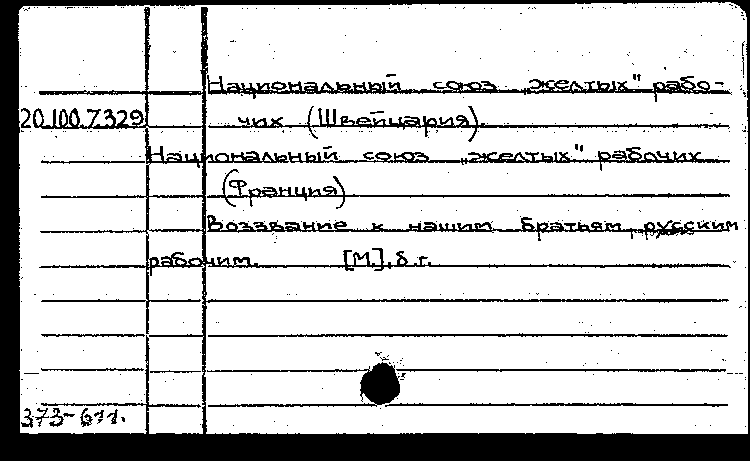 Национальный союз „желтых" рабо-
20.100.7.329 чих (Швейцария).
Национальный союз „желтых" рабочих
(Франция)
Воззвание к нашим братьям, русским
рабочим. [М.], б.г.
373-611.